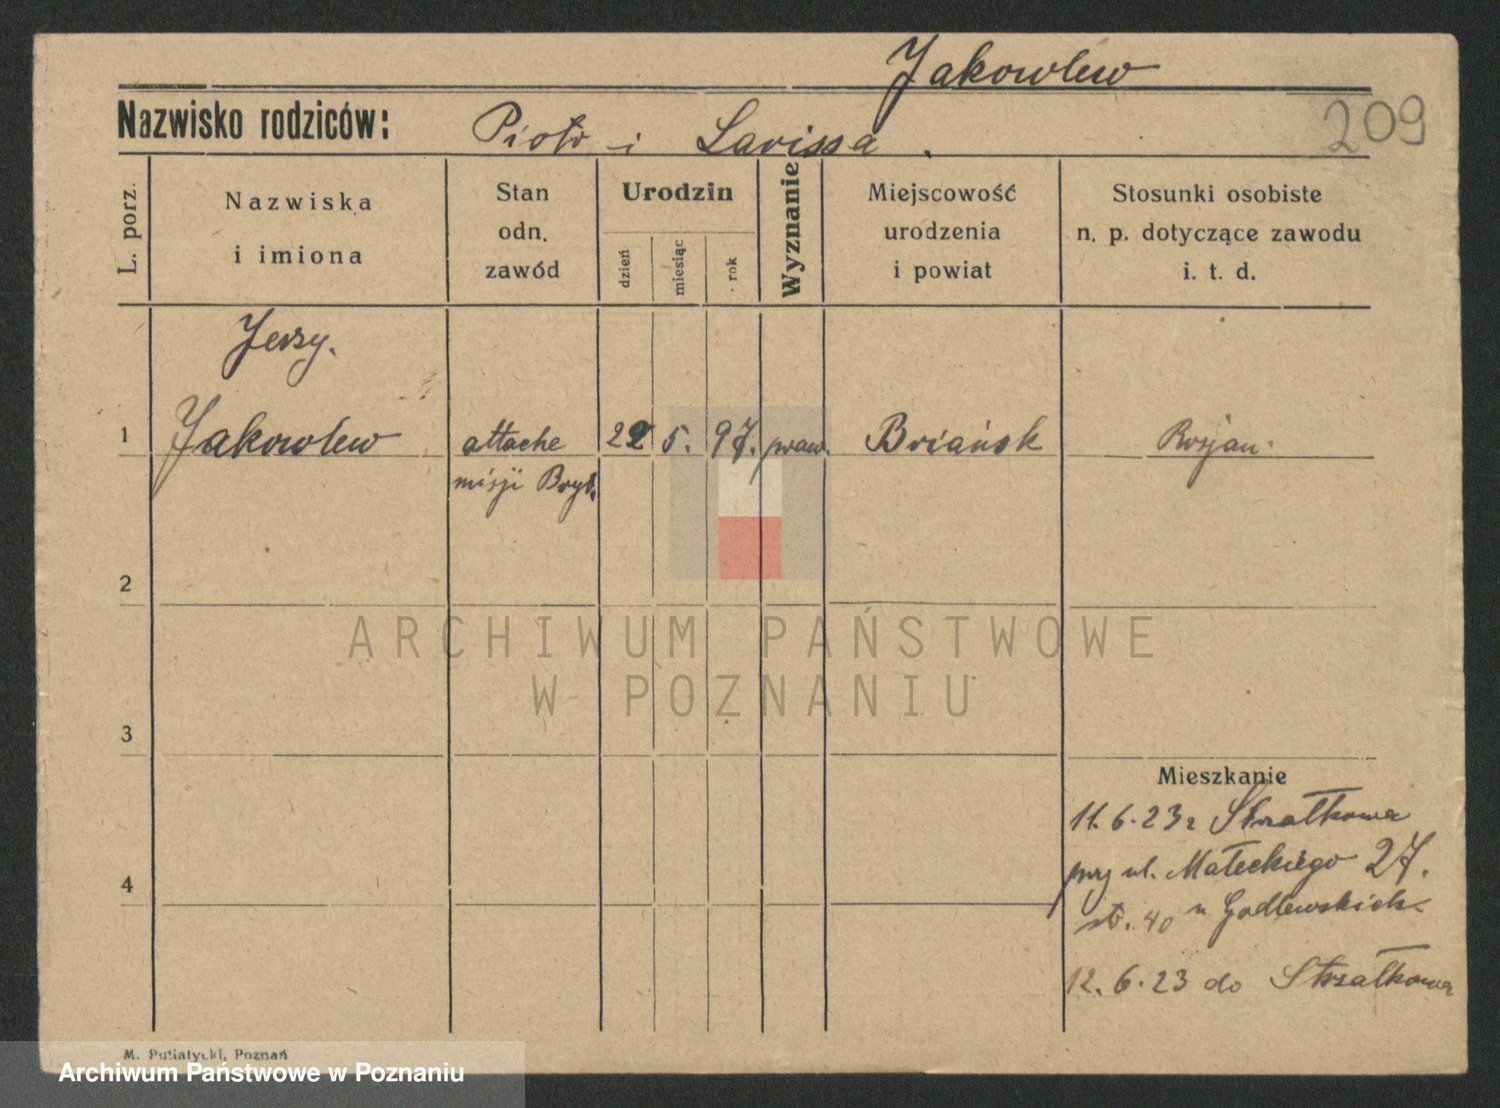 Jakowlew
209
Nazwisko rodziców: Piotr i Larissa.
L. porz.
Nazwiska
i imiona
Stan
odn.
zawód
Urodzin
dzień
miesiąc
rok
Wyznanie
Miejscowość
urodzenia
i powiat
Stosunki osobiste
n. p. dotyczące zawodu
i. t. d.
Jerzy.
1 Jakowlew attache 22 5. 97. praw. Briańsk Rosjan.
misji Bryt.
2
3
4
Mieszkanie
11.6.23 z Strzałkowa
przy ul. Małeckiego 27.
str. 40 u Godlewskich
12.6.23 do Strzałkowa
M. Putiatycki, Poznań
ARCHIWUM PAŃSTWOWE
W POZNANIU
Archiwum Państwowe w Poznaniu